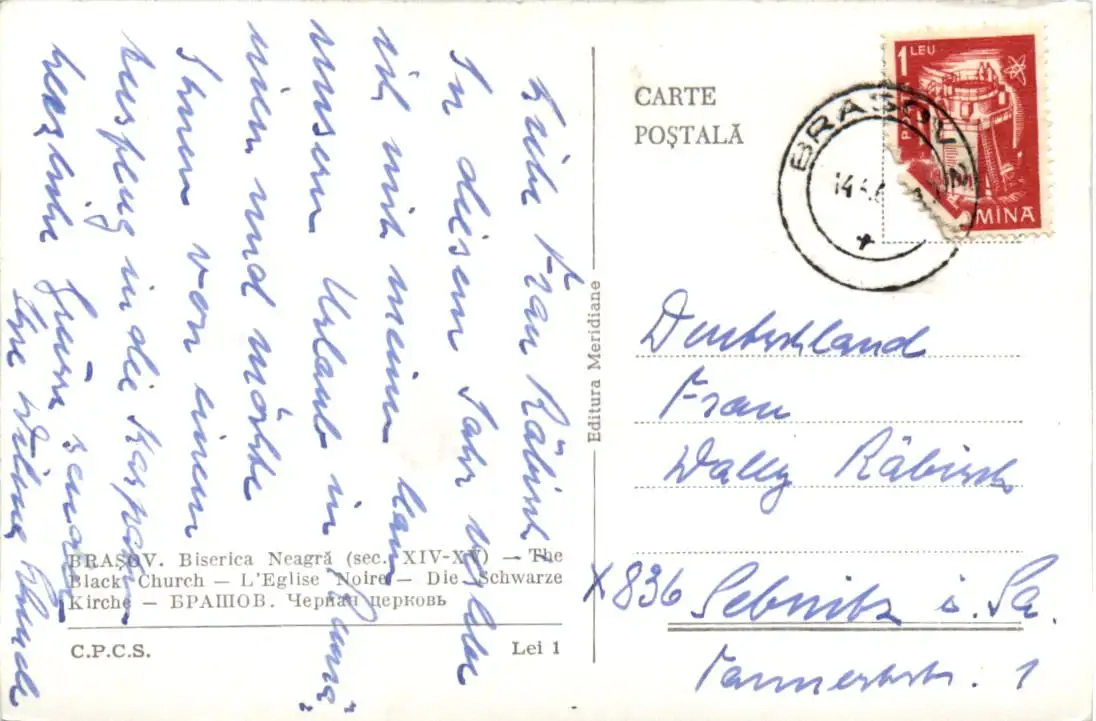 Liebe Frau Räbisch,
In diesem Jahr verlebe
ich mit meinem Mann
unseren Urlaub in "Rumä-
nien" und möchte
Ihnen von einem
Ausflug in die Karpaten
herzliche Grüsse senden
Ihre
CARTE
POȘTALĂ
1 LEU
BRAȘOV
MÎNA
Deutschland
Frau
Wally Räbisch
X836 Sebnitz i. Sa
Tannertstr. 1
Editura Meridiane
BRAȘOV. Biserica Neagră (sec. XIV-XV) — The
Black Church — L'Eglise Noire — Die Schwarze
Kirche — БРАШОВ. Черная церковь
C.P.C.S.
Lei 1